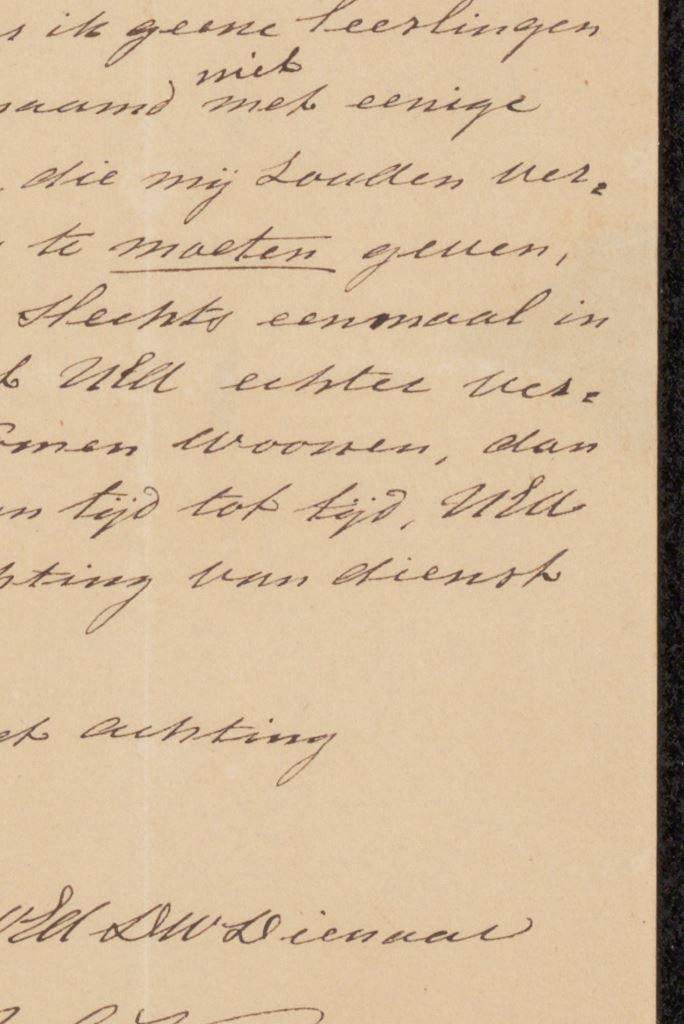 s ik geene leerlingen
niet
naamd met eenige
die mij zouden ver=
te moeten geven,
slechts eenmaal in
UEd echter ver=
omen woonen, dan
tijd tot tijd, UEd
hting van dienst
achting
UEd DW Dienaar